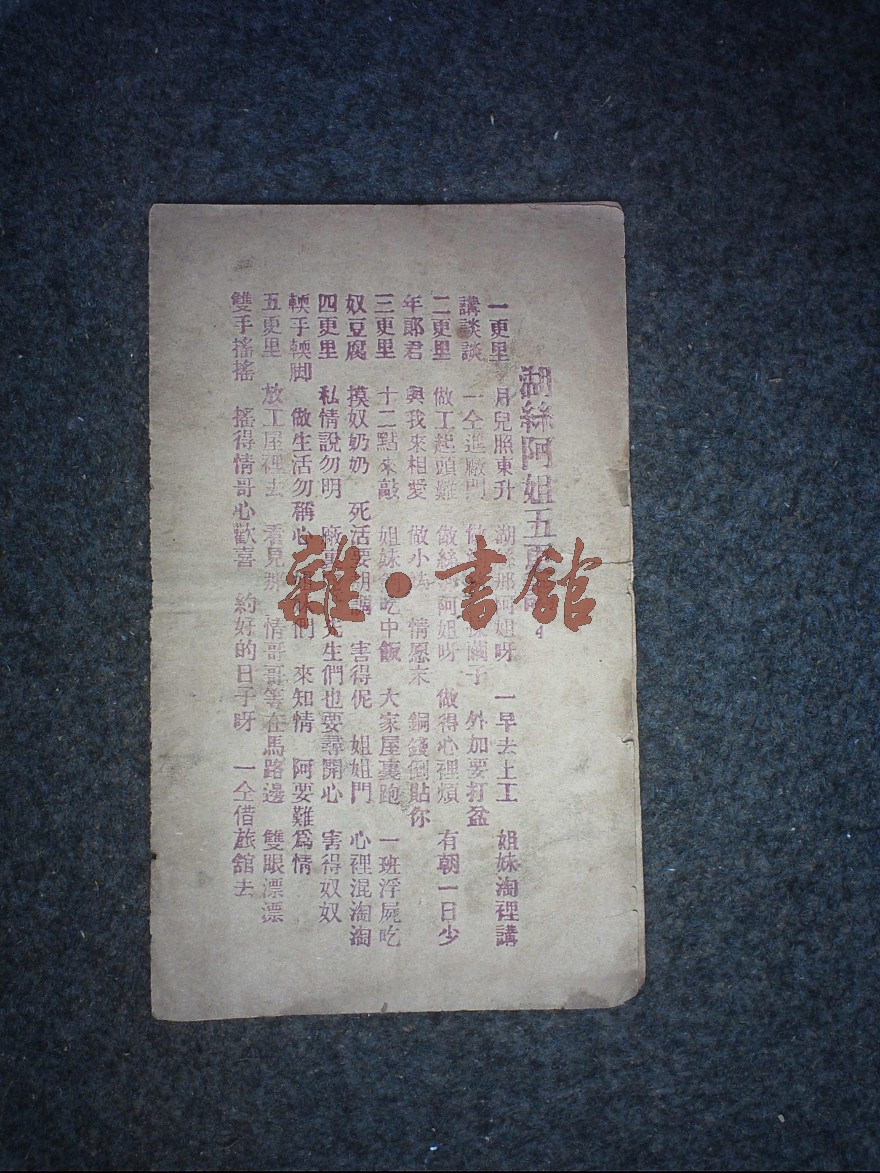 湖絲阿姐五更
一更里 月兒照東升 湖絲那阿姐呀 一早去上工 姐妹淘裡講
講談談 一仝進廠門 做 子 外加要打盆
二更里 做工起頭難 做絲 阿姐呀 做得心裡煩 有朝一日少
年郎君 與我來相愛 做小 情愿末 銅錢倒貼你
三更里 十二點來敲 姐妹 吃中飯 大家屋裏跑 一班浮屍吃
奴豆腐 摸奴奶奶 死活要 害得伲 姐姐門 心裡混淘淘
四更里 私情說勿明 廠 先生們也要尋開心 害得奴奴
輭手輭脚 做生活勿稱心 們 來知情 阿要難爲情
五更里 放工屋裡去 看見那 情哥哥等在馬路邊 雙眼漂漂
雙手搖搖 搖得情哥心歡喜 約好的日子呀 一仝借旅舘去
雜·書館